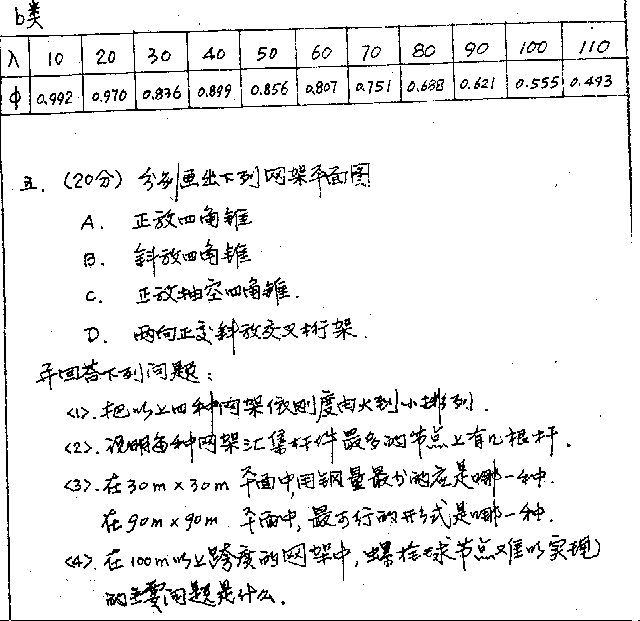 b类
λ 10 20 30 40 50 60 70 80 90 100 110
φ 0.992 0.970 0.836 0.899 0.856 0.807 0.751 0.688 0.621 0.555 0.493
五.(20分)分别画出下列网架平面图
A. 正放四角锥
B. 斜放四角锥
C. 正放抽空四角锥.
D. 两向正交斜放交叉桁架.
并回答下列问题:
<1>.把以上四种网架依刚度由大到小排列.
<2>.说明每种网架汇集杆件最多的节点上有几根杆.
<3>.在30m×30m 平面中,用钢量最少的应是哪一种.
在90m×90m 平面中,最可行的形式是哪一种.
<4>.在100m以上跨度的网架中,螺栓球节点难以实现
的主要问题是什么.